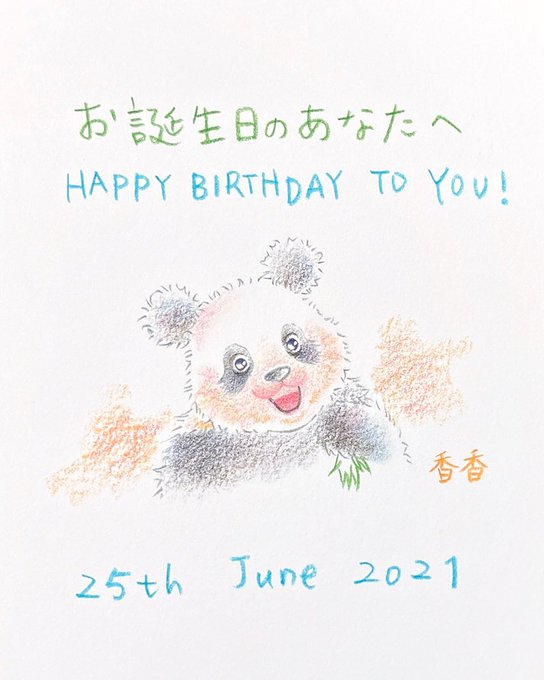 お誕生日のあなたへ
HAPPY BIRTHDAY TO YOU!
香香
25th June 2021